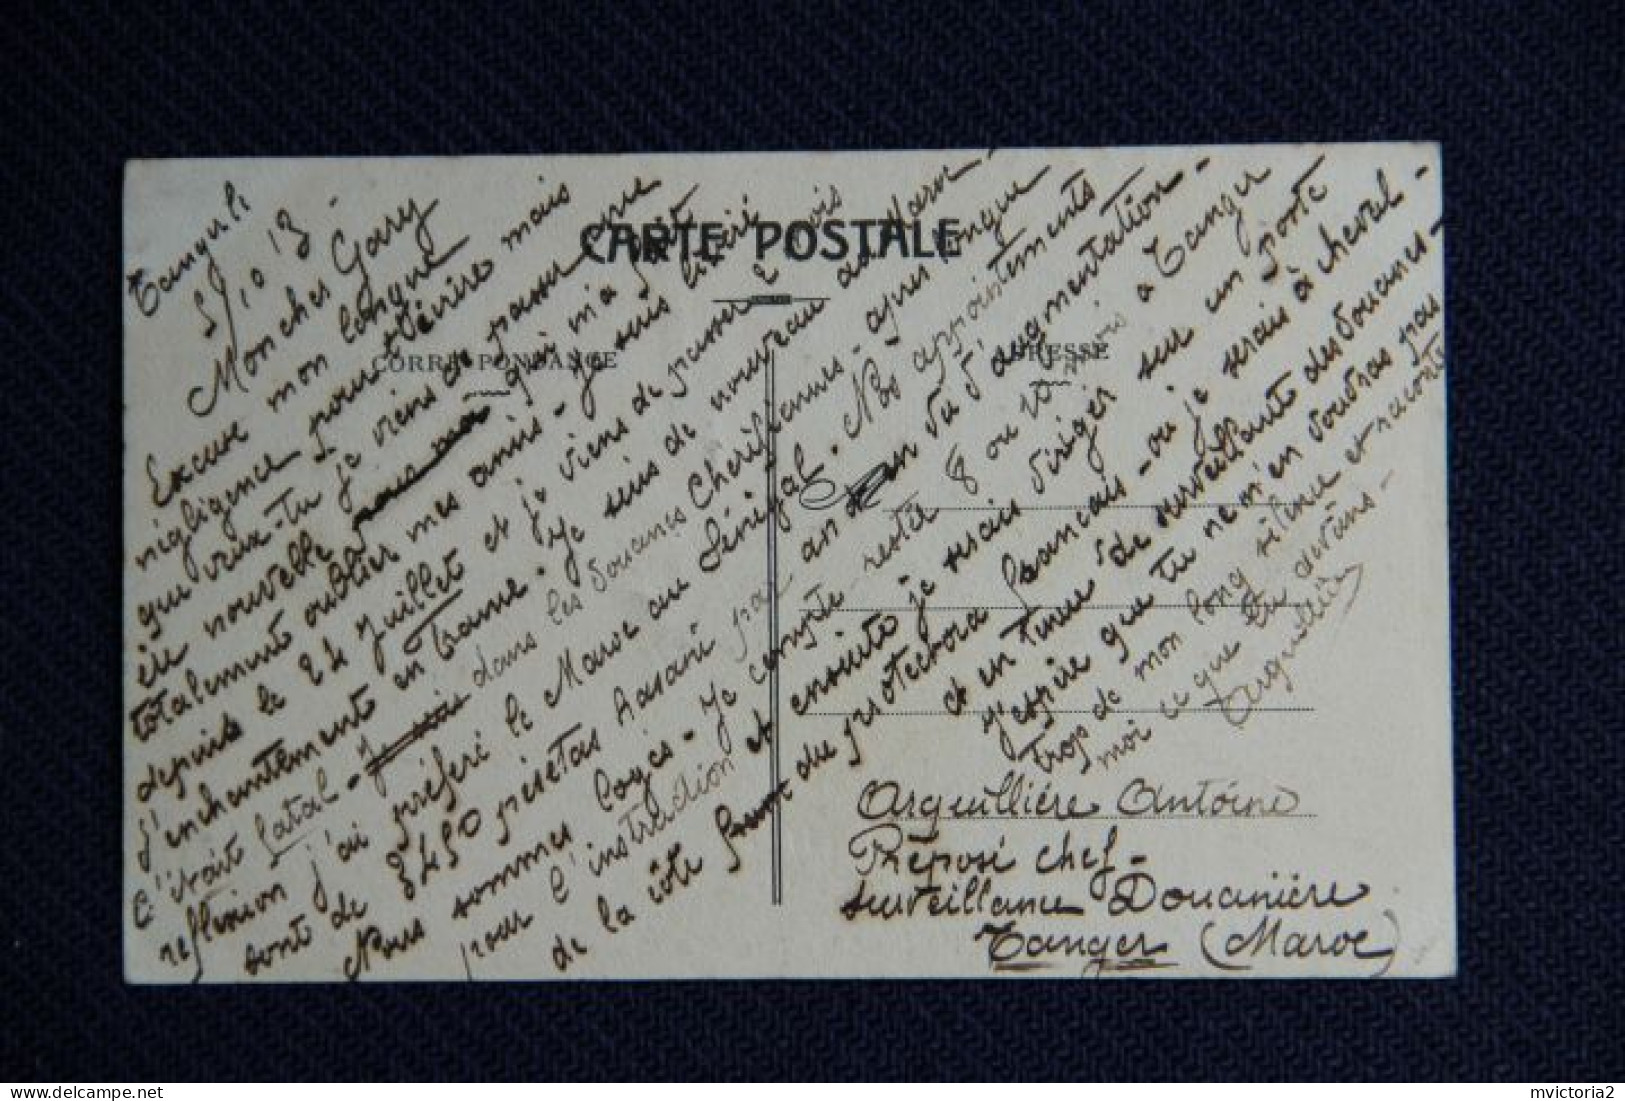 CARTE POSTALE
CORRESPONDANCE
ADRESSE
Tanger le
5/10 13 -
Mon cher Gary
Excuse mon longue
négligence pour t'écrire mais
que veux-tu je viens de passer une
vie nouvelle qui m'a fait
totalement oublier mes amis - Je suis libéré
depuis le 24 Juillet et je viens de passer 2 mois
d'enchantement en France. Je suis de nouveau au Maroc -
c'était fatal - Je suis dans les Douanes Chérifiennes - après longue
reflexion j'ai préféré le Maroc au Sénégal. Nos appointements
sont de 3450 pesetas hasani par an en vu d'augmentation -
Nous sommes logés - Je compte rester 8 ou 10 mois à Tanger
pour l'instruction et ensuite je serais dirigé sur un poste
de la côte du protectora français - ou je serais à cheval -
et en tenue de surveillante des Douanes -
J'espère que tu ne m'en voudras pas
trop de mon long silence et raconte
moi ce que tu deviens -
Arguillière
Arguillière Antoine
Préposé chef -
surveillance Douanière
Tanger (Maroc)
mvictoria2